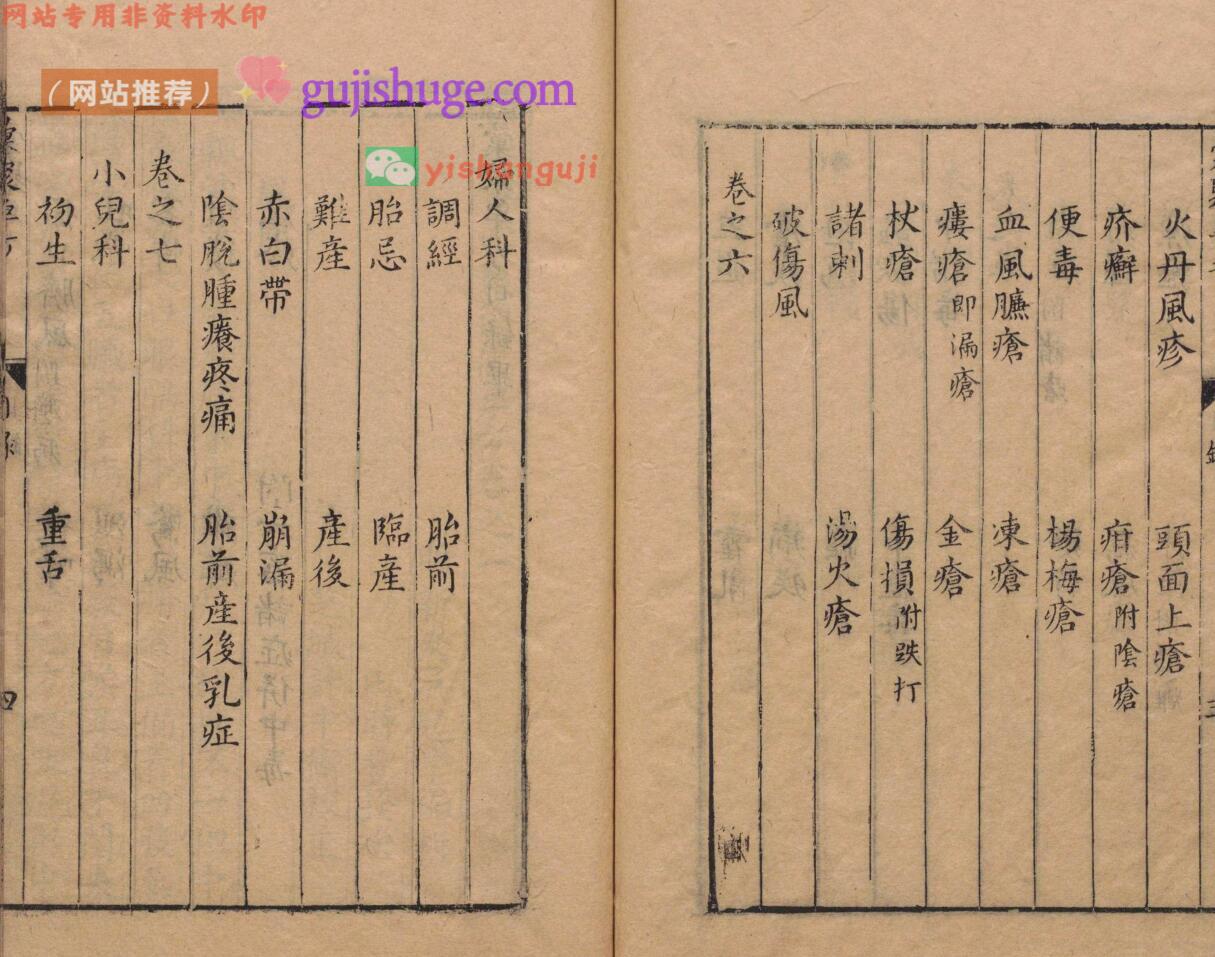 网站专用非资料水印
（网站推荐）
gujishuge.com
yishanguji
火丹風疹 頭面上瘡
疥癬 疳瘡附陰瘡
便毒 楊梅瘡
血風臁瘡 凍瘡
瘻瘡即漏瘡 金瘡
杖瘡 傷損附跌打
諸刺 湯火瘡
破傷風
卷之六
婦人科
調經 胎前
胎忌 臨產
難產 產後
赤白帶 崩漏
陰脫腫癢疼痛 胎前產後乳症
卷之七
小兒科
初生 重舌
四